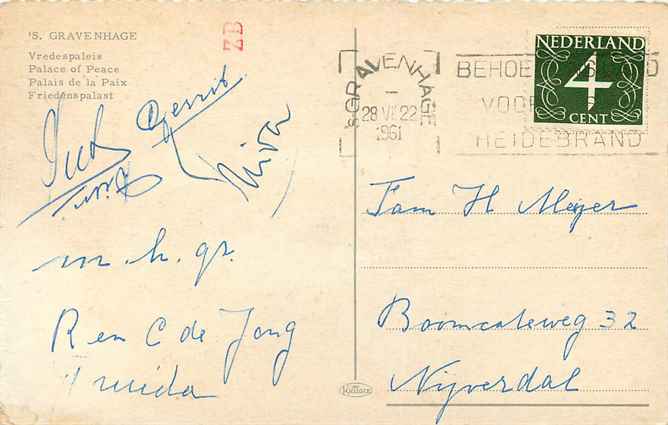 'S. GRAVENHAGE
Vredespaleis
Palace of Peace
Palais de la Paix
Friedenspalast
ZB
Gerrit
m. h. gr.
R en C de Jong
Truida
's-GRAVENHAGE
28 VI 22
1961
VOOR
HEIDEBRAND
NEDERLAND
4
CENT
Fam H Meyer
Nijverdal